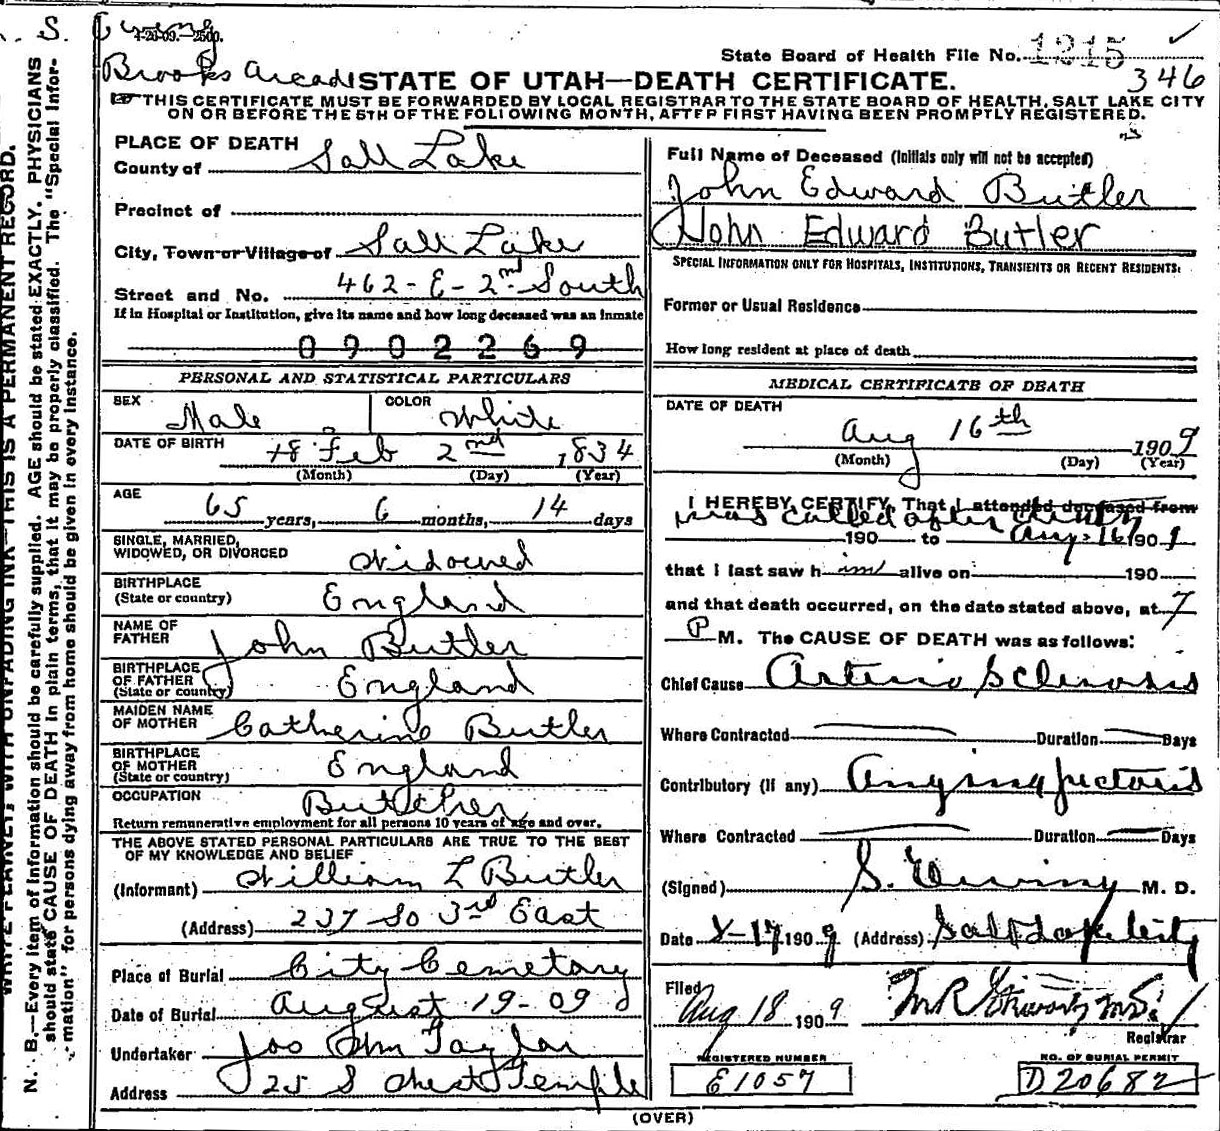 S. Ewing
4-20-09.—2500.
Brooks Arcade
State Board of Health File No. 1215
346
STATE OF UTAH—DEATH CERTIFICATE.
THIS CERTIFICATE MUST BE FORWARDED BY LOCAL REGISTRAR TO THE STATE BOARD OF HEALTH, SALT LAKE CITY
ON OR BEFORE THE 5TH OF THE FOLLOWING MONTH, AFTER FIRST HAVING BEEN PROMPTLY REGISTERED.
WRITE PLAINLY, WITH UNFADING INK—THIS IS A PERMANENT RECORD.
N. B.—Every item of information should be carefully supplied. AGE should be stated EXACTLY. PHYSICIANS
should state CAUSE OF DEATH in plain terms, that it may be properly classified. The "Special Infor-
mation" for persons dying away from home should be given in every instance.
PLACE OF DEATH
County of Salt Lake
Precinct of
City, Town or Village of Salt Lake
Street and No. 462-E-2nd South
If in Hospital or Institution, give its name and how long deceased was an inmate
0902269
PERSONAL AND STATISTICAL PARTICULARS
SEX Male COLOR White
DATE OF BIRTH 18 Feb 2nd 1834
(Month) (Day) (Year)
AGE
65 years, 6 months, 14 days
SINGLE, MARRIED,
WIDOWED, OR DIVORCED Widowed
BIRTHPLACE
(State or country) England
NAME OF
FATHER John Butler
BIRTHPLACE
OF FATHER
(State or country) England
MAIDEN NAME
OF MOTHER Catherine Butler
BIRTHPLACE
OF MOTHER
(State or country) England
OCCUPATION Butcher
Return remunerative employment for all persons 10 years of age and over.
THE ABOVE STATED PERSONAL PARTICULARS ARE TRUE TO THE BEST
OF MY KNOWLEDGE AND BELIEF
(Informant) William L Butler
(Address) 237 So 3rd East
Place of Burial City Cemetary
Date of Burial August 19-09
Undertaker Jos Wm Taylor
Address 25 S West Temple
Full Name of Deceased (Initials only will not be accepted)
John Edward Butler
John Edward Butler
SPECIAL INFORMATION ONLY FOR HOSPITALS, INSTITUTIONS, TRANSIENTS OR RECENT RESIDENTS:
Former or Usual Residence
How long resident at place of death
MEDICAL CERTIFICATE OF DEATH
DATE OF DEATH
Aug 16th 1909
(Month) (Day) (Year)
I HEREBY CERTIFY, That I attended deceased from
was called after death
190 to Aug-16 1909
that I last saw him alive on 190
and that death occurred, on the date stated above, at 7
P M. The CAUSE OF DEATH was as follows:
Chief Cause Arterio Sclerosis
Where Contracted Duration Days
Contributory (if any) Angina pectoris
Where Contracted Duration Days
(Signed) S. Ewing M. D.
Date 8-17 1909 (Address) Salt Lake City
Filed
Aug 18 1909
Registrar
REGISTERED NUMBER
E1057
NO. OF BURIAL PERMIT
D20682
(OVER)